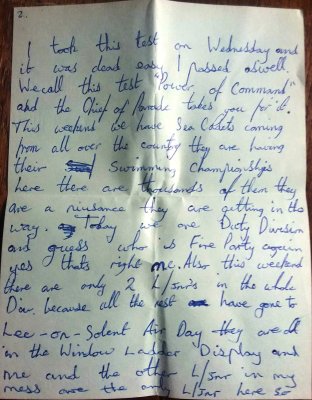 2.
I took this test on Wednesday and
it was dead easy I passed aswell.
We call this test "Power of Command"
and the Chief of Parade takes you for it.
This weekend we have Sea Cadets coming
from all over the country they are having
their Swimming Championships
here there are thousands of them they
are a niusance they are getting in the
way. Today we are Duty Division
and guess who is Fire Party again
yes thats right me. Also this weekend
there are only 2 L/Jnrs in the whole
Div. because all the rest have gone to
Lee-on-Solent Air Day they are all
in the Window Ladder Display and
me and the other L/Jnr in my
mess are the only L/Jnr here so